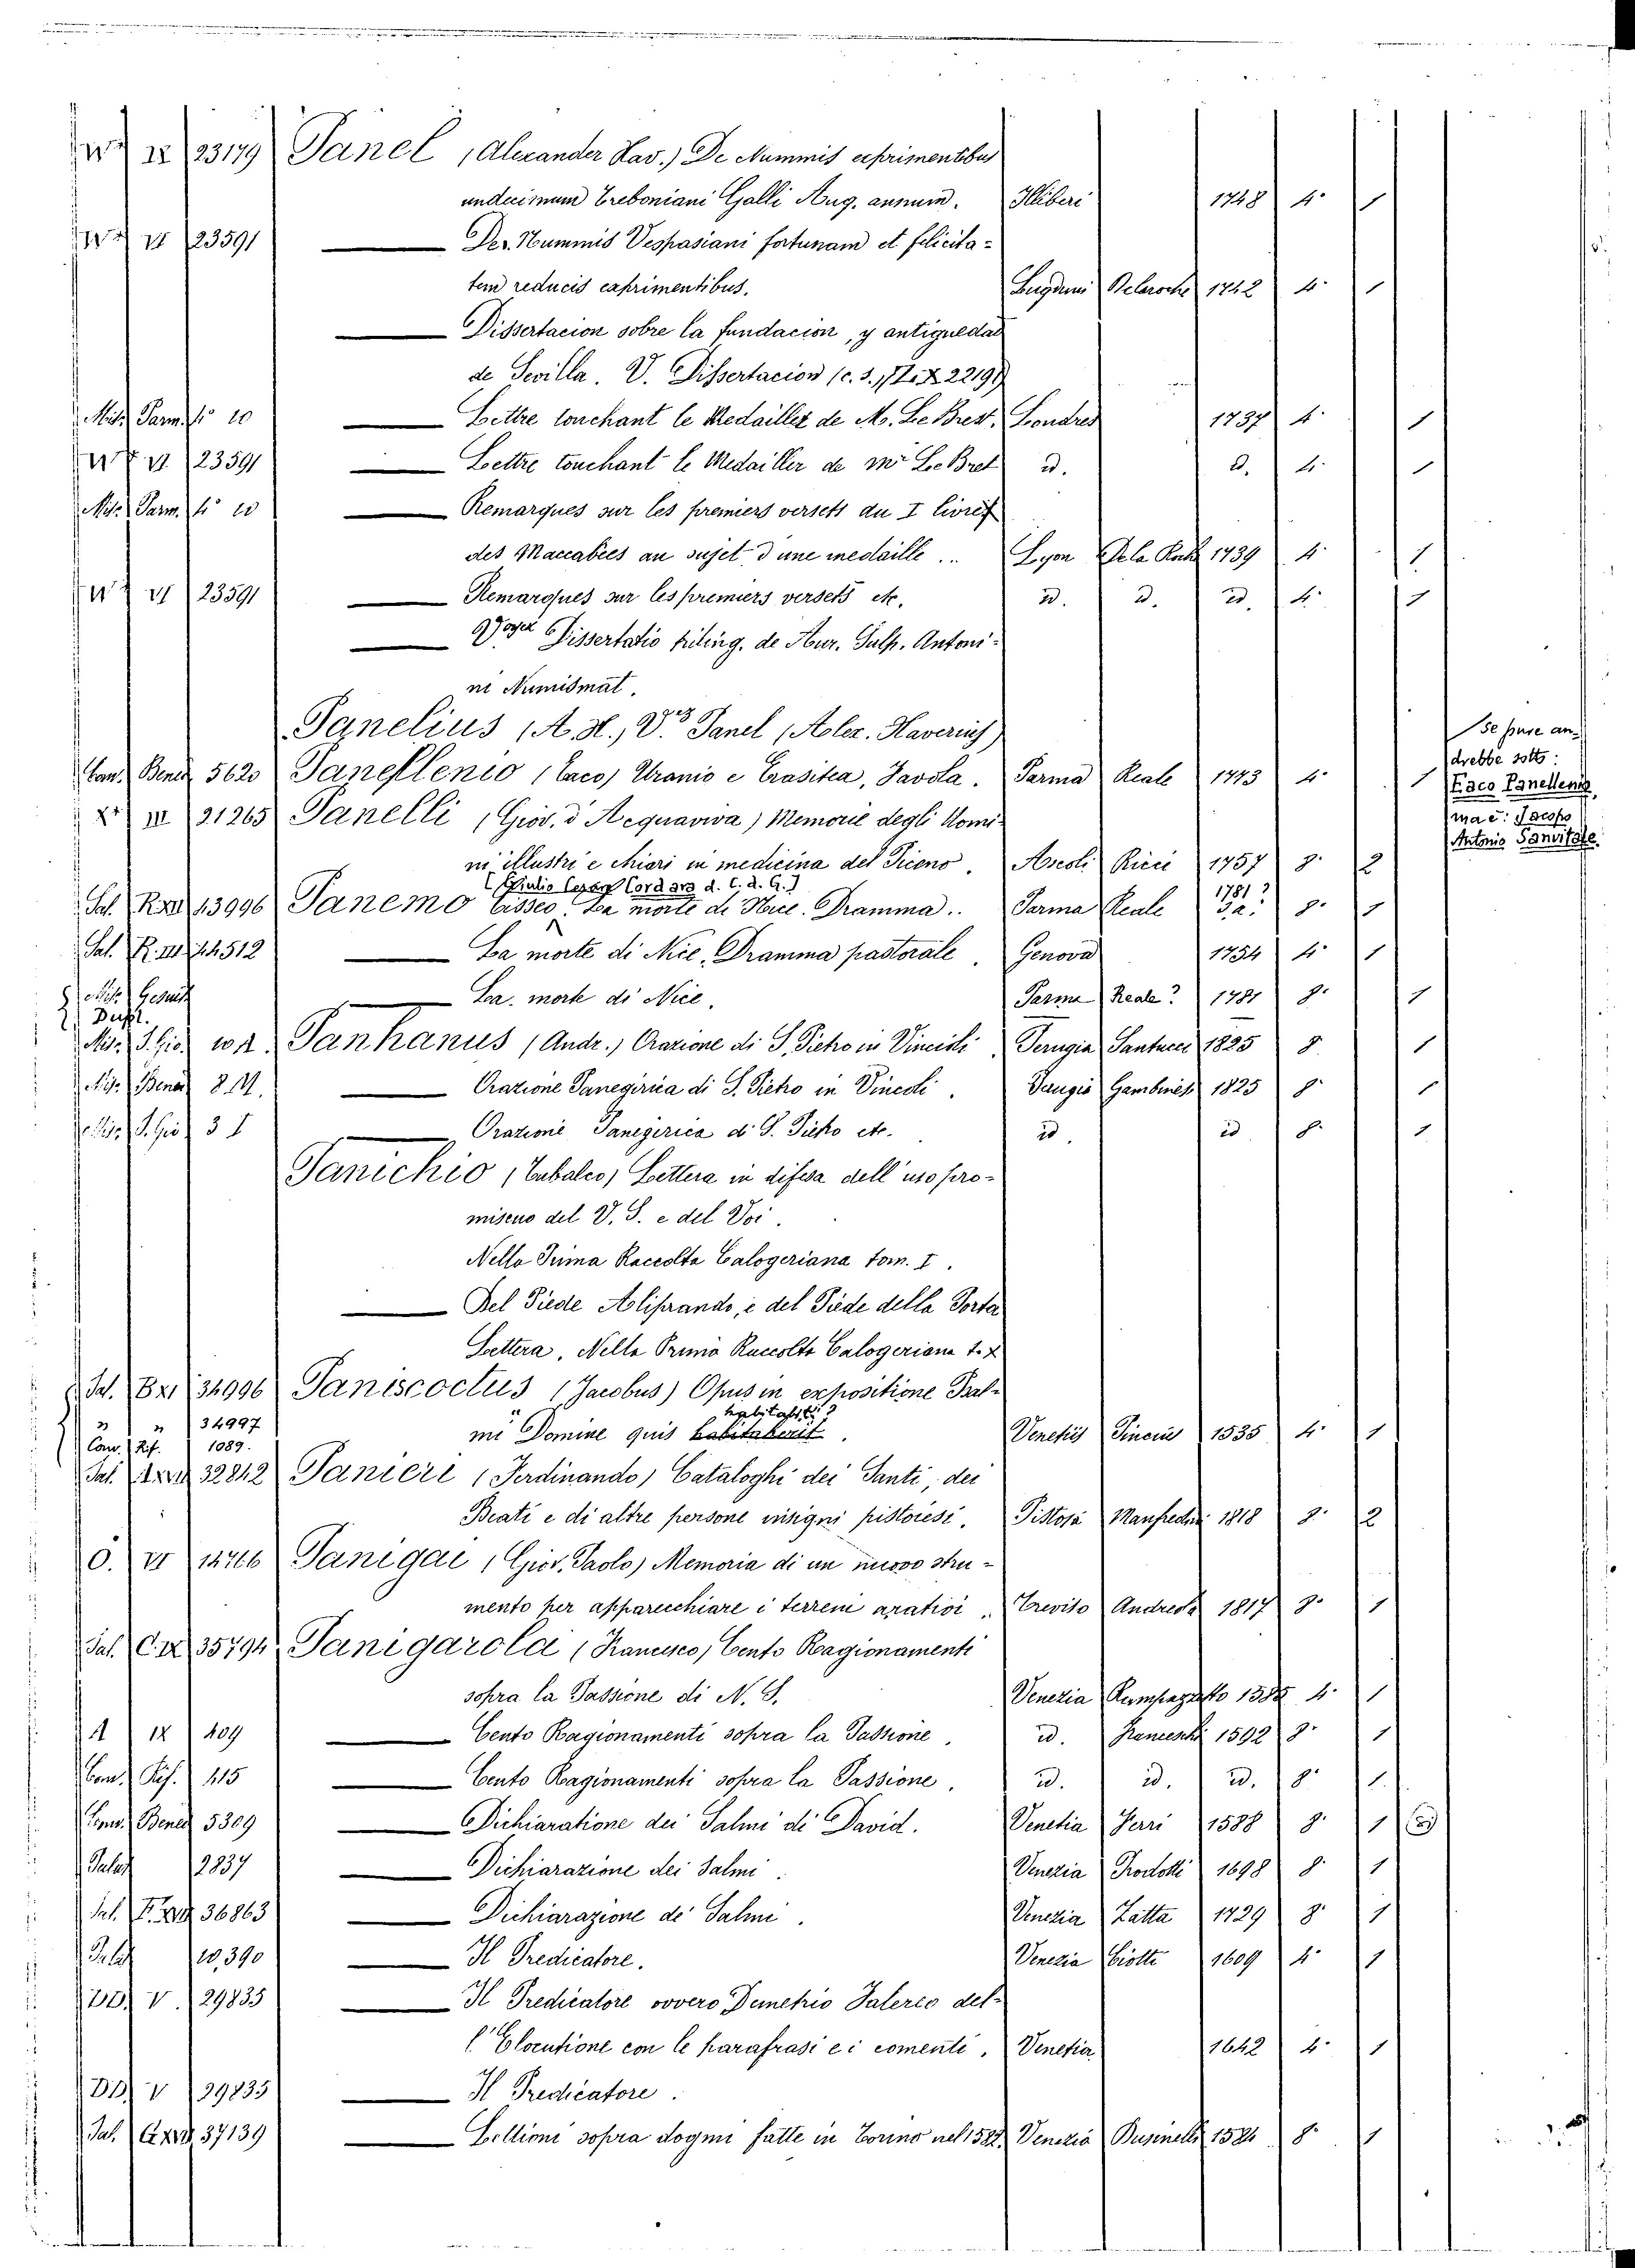 23179 Panel (Alexander Xav.) De Nummis exprimentibus
undecimum Treboniani Galli Aug. annum. Illiberi 1748 4° 1
VI 23591 — De Nummis Vespasiani fortunam et felicita-
tem reducis exprimentibus. Lugduni Delaroche 1742 4° 1
— Dissertacion sobre la fundacion, y antiguedad
de Sevilla. V. Dissertacion
Misc. Parm. 4° 10 — Lettre touchant le Medailles de M. Le Bret. Londres 1737 4° 1
VI 23591 — Lettre touchant le Medailler de Mr Le Bret id. id. 4° 1
Misc. Parm. 4° 10 — Remarques sur les premiers versets du I livre
des Maccabées au sujet d'une medaille.. Lyon De la Roche 1739 4° 1
VI 23591 — Remarques sur les premiers versets etc. id. id. id. 4° 1
— Voyez Dissertatio de Aur. Sulp. Antoni-
ni Numismat.
Panelius (A. X.) V. Panel (Alex. Xaverius)
Se pure an-
drebbe sotto:
Eaco Panellenio,
ma è: Jacopo
Antonio Sanvitale.
Con. Bened. 5620 Panellenio (Eaco) Uranio e Erasitea, Favola. Parma Reale 1743 4° 1
III 21265 Panelli (Giov. d'Acquaviva) Memorie degli Uomi-
ni illustri e chiari in medicina del Piceno. Ascoli Ricci 1757 8° 2
[Giulio Cesare Cordara d. C. d. G.] 1781?
13996 Panemo Cisseo. La morte di Nice. Dramma.. Parma Reale s.a. 8° 1
Sal. R. III 14512 — La morte di Nice, Dramma pastorale. Genova 1754 4° 1
Misc. Gesuit.
Dupl. — La morte di Nice. Parma Reale? 1781 8° 1
Misc. S. Gio. Panhanus (Andr.) Orazione di S. Pietro in Vincoli Perugia Santucci 1825 8 1
Misc. Bened. — Orazione Panegirica di S. Pietro in Vincoli. Perugia Gambinis 1825 8° 1
Misc. S. Gio. — Orazione Panegirica di S. Pietro etc. id. id 8° 1
Panichio (Eubaleo) Lettera in difesa dell'uso pro-
miscuo del V. S. e del Voi.
Nella Prima Raccolta Calogeriana tom. I.
— Del Piede Aliprando, e del Piede della Porta
Lettera. Nella Prima Raccolta Calogeriana t. X
Sal. 34996 Paniscoctus (Jacobus) Opus in expositione Psal-
habitabit?
" " 34997 mi Domine quis habitaberit. Venetiis Pincius 1535 4° 1
Conv. Rif. 1089.
Sal. 32842 Panieri (Ferdinando) Cataloghi dei Santi, dei
Beati e di altre persone insigni pistoiesi. Pistoja Manfredini 1818 8° 2
O. VI 14766 Panigai (Giov. Paolo) Memoria di un nuovo stru-
mento per apparecchiare i terreni arativi. Treviso Andreola 1817 8° 1
Sal. 35794 Panigarola (Francesco) Cento Ragionamenti
sopra la Passione di N. S. Venezia 4° 1
A IX 409 — Cento Ragionamenti sopra la Passione. id. Franceschi 1592 8° 1
Conv. Rif. 415 — Cento Ragionamenti sopra la Passione. id. id. id. 8° 1
Conv. Bened. 5309 — Dichiaratione dei Salmi di David. Venetia Ferri 1588 8° 1
Palat. 2837 — Dichiarazione dei Salmi. Venezia Prodotti 1698 8° 1
Sal. 36863 — Dichiarazione de' Salmi. Venezia Zatta 1729 8° 1
Palat. 10,390 — Il Predicatore. Venezia Ciotti 1609 4° 1
DD V. 29835 — Il Predicatore ovvero Demetrio Falereo del-
l'Elocutione con le parafrasi e i comenti. Venetia 1642 4° 1
DD V 29835 — Il Predicatore.
Sal. 37139 — Lettioni sopra dogmi fatte in Torino nel 1582. Venezia Businelli 1584 8° 1